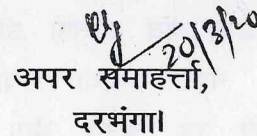 20/3/20
अपर समाहर्त्ता,
दरभंगा।